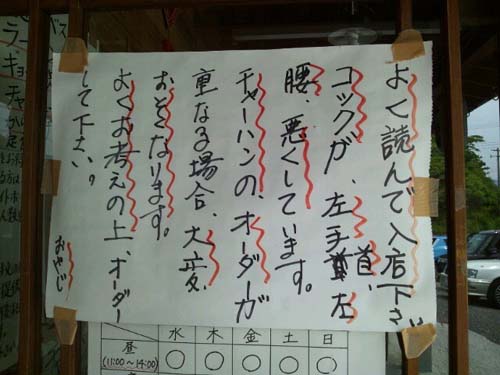 よく読んで入店下さい
コックが、左手首、左
腰、悪くしています。
チャーハンの、オーダーが
重なる場合、大変、
おそくなります。
よくお考えの上、オーダー
して下さい。
おやじ
水 木 金 土 日
昼
(11:00～14:00) 〇 〇 〇 〇 〇